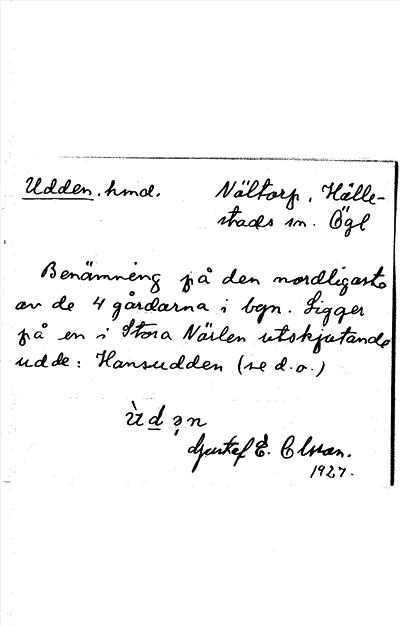 Udden. hmd. Nältorp, Hälle-
stads sn. Ögl
Benämning på den nordligaste
av de 4 gårdarna i byn. Ligger
på en i Stora Närlen utskjutande
udde: Hansudden (se d.o.)
ùdən
Gustaf E. Olsson.
1927.